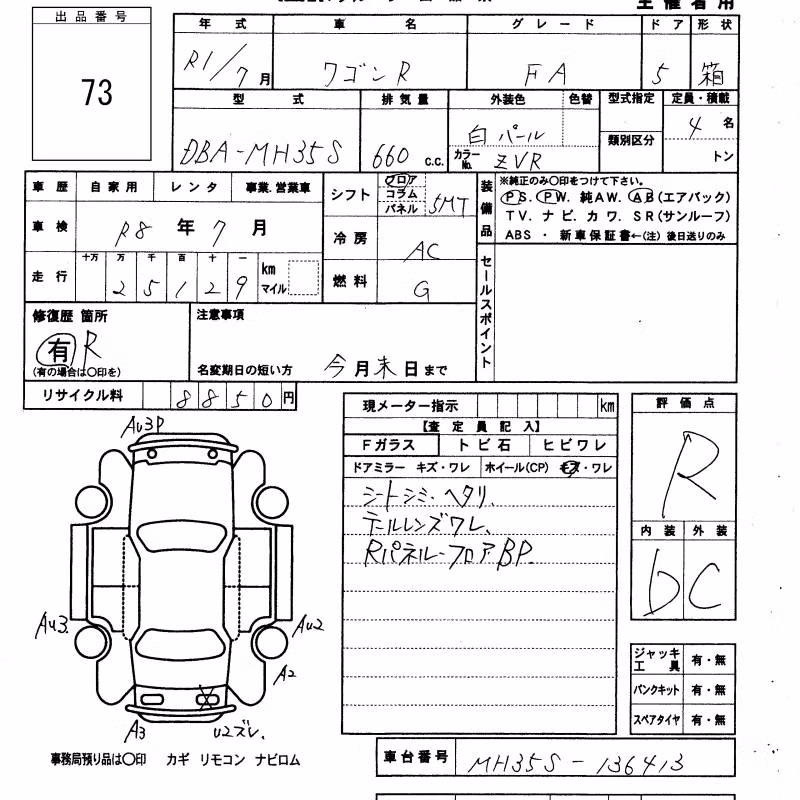 出品番号
73
主催者用
年式 車名 グレード ドア 形状
R1/7月 ワゴンR FA 5 箱
型式 排気量 外装色 色替 型式指定 定員・積載
DBA-MH35S 660 c.c. 白パール 類別区分 4名
カラーNo. ZVR トン
車歴 自家用 レンタ 事業.営業車
車検 R8年7月
走行 十万 万 千 百 十 一 km マイル
25129
シフト フロア コラム パネル 5MT
冷房 AC
燃料 G
装備品
※純正のみ〇印をつけて下さい。
PS. PW. 純AW. AB(エアバック)
TV. ナビ. カワ. SR(サンルーフ)
ABS ・ 新車保証書←(注)後日送りのみ
セールスポイント
修復歴 箇所
有 R
(有の場合は〇印を)
注意事項
名変期日の短い方 今月末日まで
リサイクル料 8850円
現メーター指示 km
【査定員記入】
Fガラス トビ石 ヒビワレ
ドアミラー キズ・ワレ ホイール(CP) キズ・ワレ
シートシミ・ヘタリ.
テールレンズワレ.
Rパネル-フロアBP.
評価点
R
内装 外装
D C
Au3P
Au3.
Au2
A2
A3
U2ズレ.
ジャッキ工具 有・無
パンクキット 有・無
スペアタイヤ 有・無
事務局預り品は〇印 カギ リモコン ナビロム
車台番号 MH35S-136413